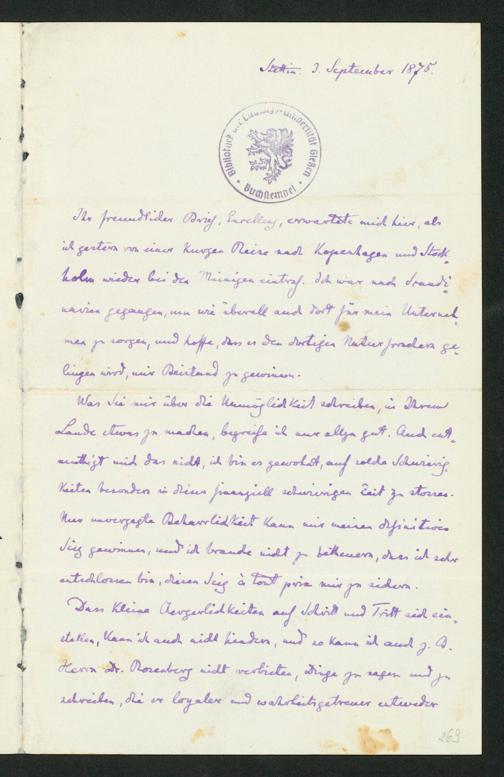 Stettin. 3. September 1875.
Bibliothek der Ludwigs-Universität Gießen
Buchstempel
Ihr freundlicher Brief, Excellenz, erwartete mich hier, als
ich gestern von einer kurzen Reise nach Kopenhagen und Stock-
holm wieder bei den Meinigen eintraf. Ich war nach Scandi-
navien gegangen, um wie überall auch dort für mein Unterneh-
men zu sorgen, und hoffe, dass es den dortigen Naturforschern ge-
lingen wird, mir Beistand zu gewinnen.
Was Sie mir über die Unmöglichkeit schreiben, in Ihrem
Lande etwas zu machen, begreife ich nur allzu gut. Auch ent-
muthigt mich das nicht, ich bin es gewohnt, auf solche Schwierig
keiten besonders in dieser finanziell schwierigen Zeit zu stossen.
Nur unverzagte Beharrlichkeit kann mir meinen definitiven
Sieg gewinnen, und ich brauche nicht zu betheuern, dass ich sehr
entschlossen bin, diesen Sieg à tout prix mir zu sichern.
Dass kleine Aergerlichkeiten auf Schritt und Tritt sich ein-
stellen, kann ich auch nicht hindern, und so kann ich auch z. B.
Herrn Dr. Rosenberg nicht verbieten, Dinge zu sagen und zu
schreiben, die er loyaler und wahrheitsgetreuer entweder
269